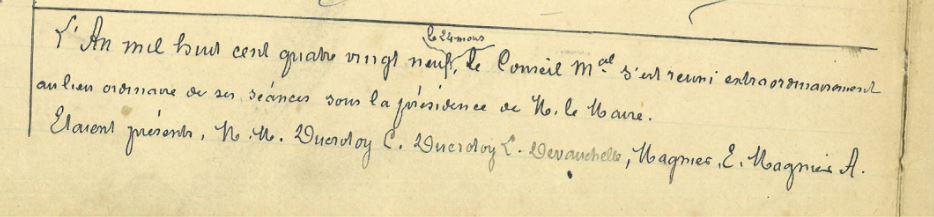 le 24 mars
L'An mil huit cent quatre vingt neuf, le Conseil Mal s'est reuni extraordinairement
au lieu ordinaire de ses séances sous la présidence de M. le Maire.
Etaient présents, M.M. Ducrotoy C. Ducrotoy L. Devauchelle, Magnier, E. Magnier A.